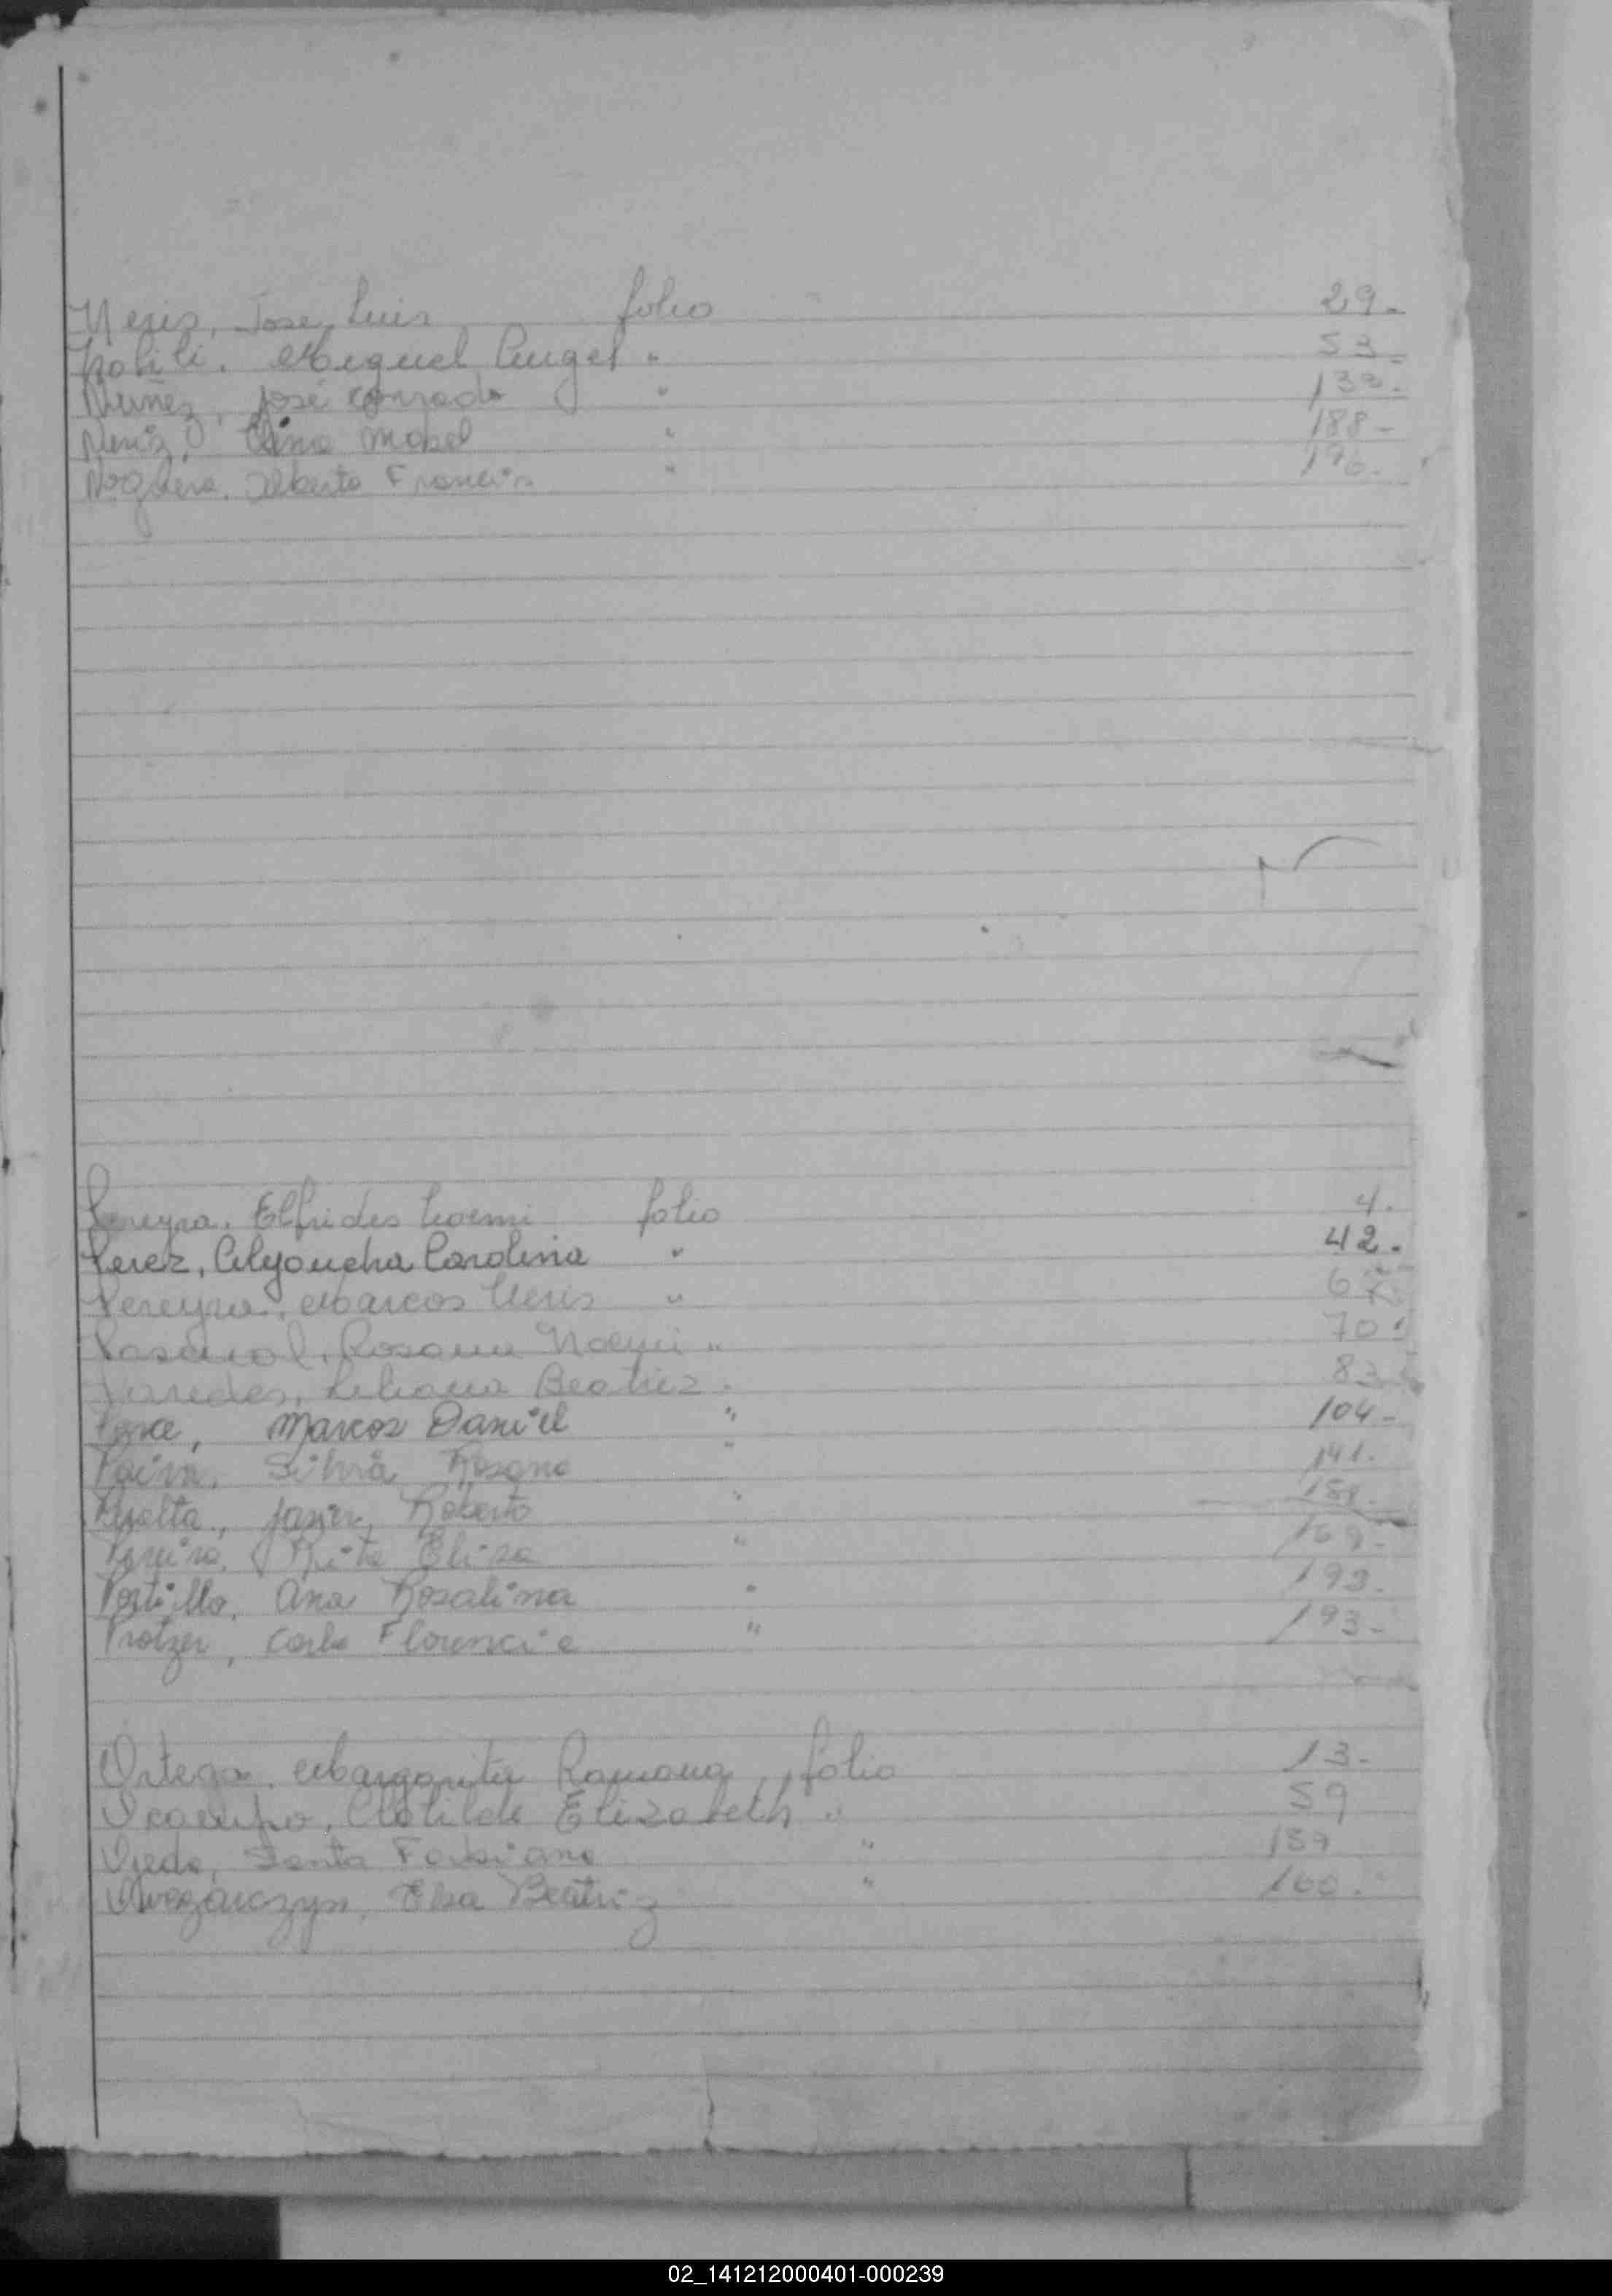 Neris, Jose Luis folio 29.-
Nobili. Miguel Angel " 53 -
Nuñez, José Conrado " 133.-
Neniz, Elina Mabel " 188 -
Noguera, Alberto Francis " 196.-
Pereyra. Elfrides Noemi folio 4.
Perez, Alyoucha Carolina " 42.
Pereyra. Marcos Neris "
Pascual, Rosana Noemi " 70.
Paredes, Liliana Beatriz " 83
Ponce, Marcos Daniel " 104 -
Paiva, Silvia Rosana " 141.
Peralta, Javier Roberto " 158.
Pereira, Rita Elisa " 169.-
Portillo, Ana Rosalina " 193.
Protzer, Carla Florencia " 193 -
Ortega. Margarita Ramona, folio 13.-
Ocampo, Clotilde Elizabeth " 59
Ojeda, Santa Fabiana " 159
Elsa Beatriz " 160.
02_141212000401-000239